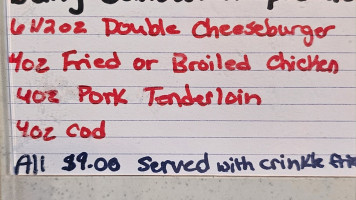 6 1/2oz Double Cheeseburger
4oz Fried or Broiled Chicken
4oz Pork Tenderloin
4oz Cod
All $9.00 Served with crinkle